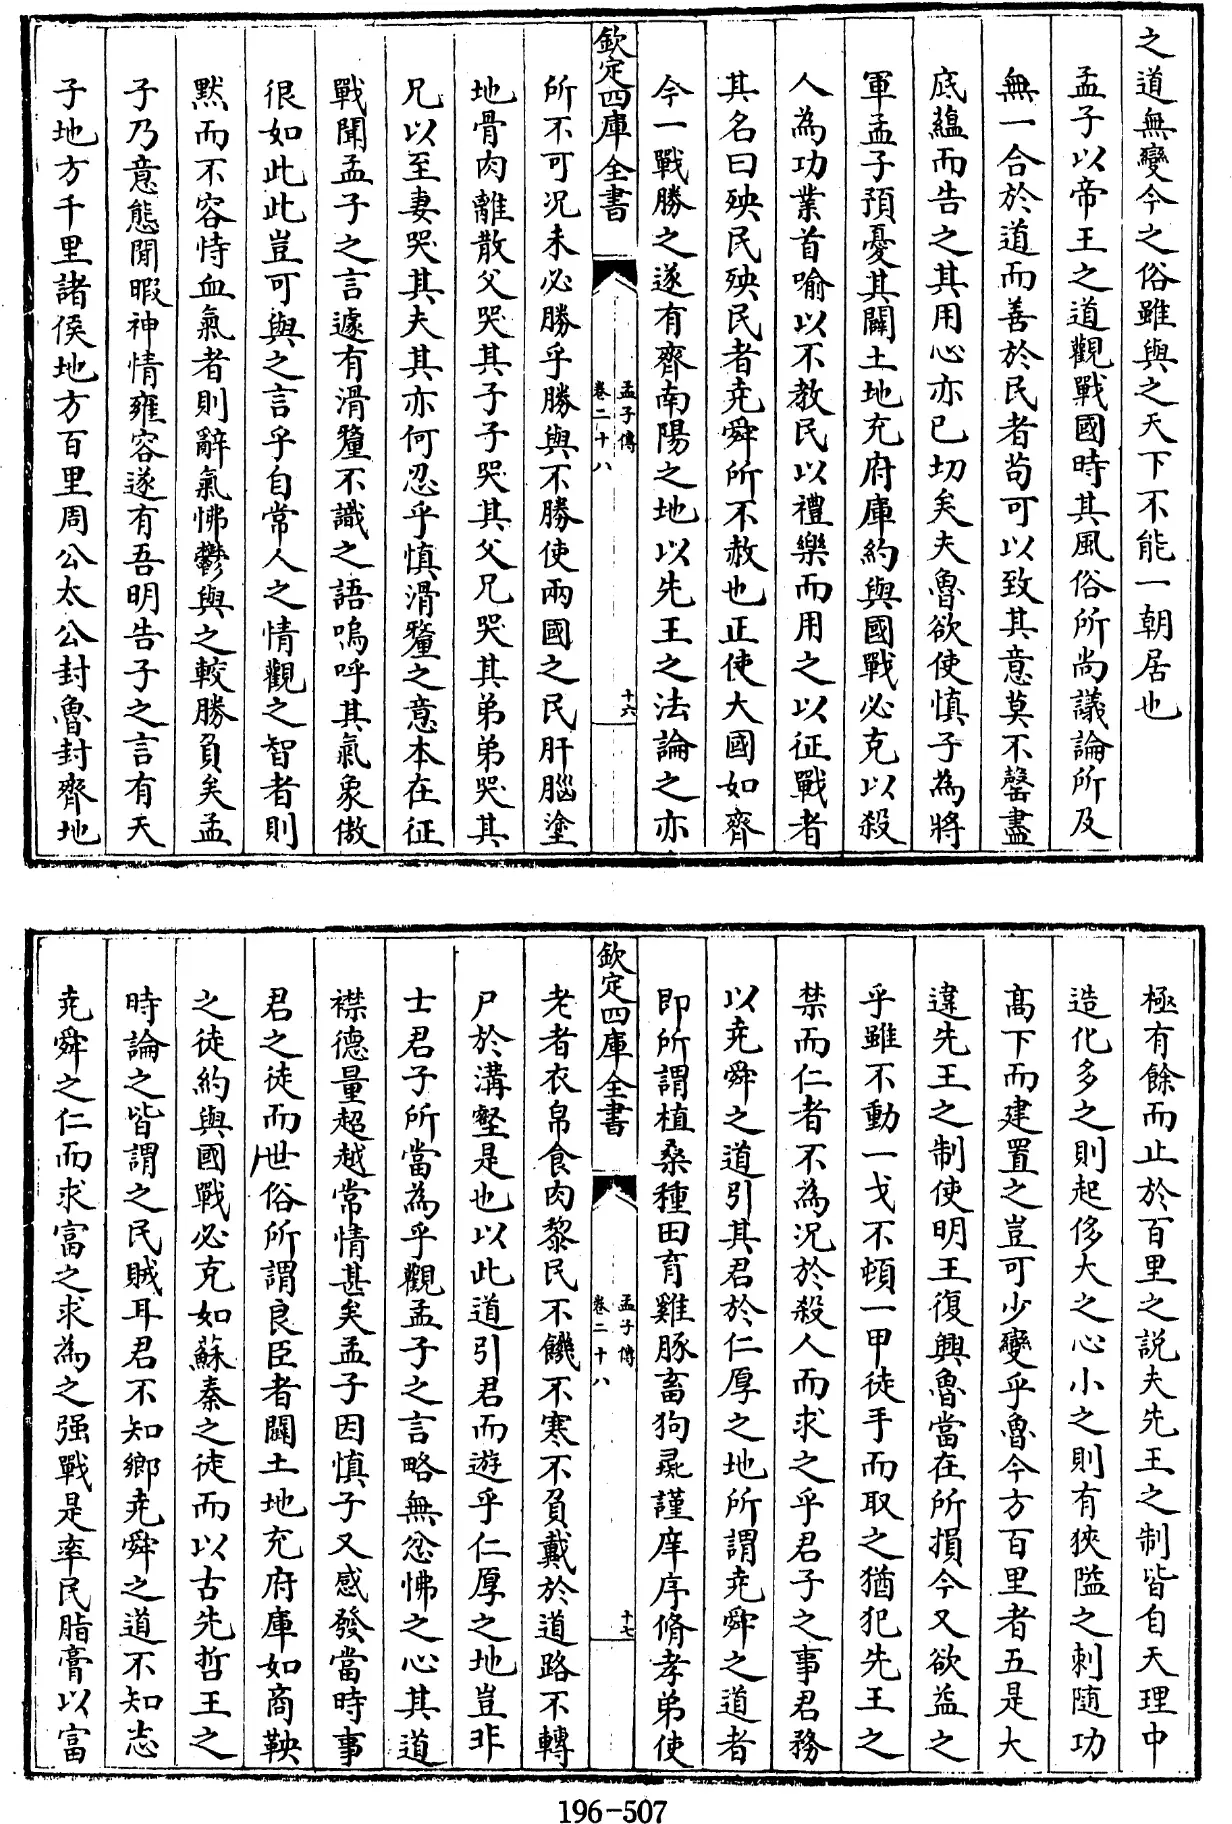 之道無變今之俗雖與之天下不能一朝居也
孟子以帝王之道觀戰國時其風俗所尚議論所及
無一合於道而善於民者茍可以致其意莫不罄盡
底蘊而告之其用心亦已切矣夫魯欲使慎子為將
軍孟子預憂其闢土地充府庫約與國戰必克以殺
人為功業首喻以不教民以禮樂而用之以征戰者
其名曰殃民殃民者堯舜所不赦也正使大國如齊
今一戰勝之遂有齊南陽之地以先王之法論之亦
欽定四庫全書
孟子傳
卷二十八
十六
所不可況未必勝乎勝與不勝使兩國之民肝腦塗
地骨肉離散父哭其子子哭其父兄哭其弟弟哭其
兄以至妻哭其夫其亦何忍乎慎滑釐之意本在征
戰聞孟子之言遽有滑釐不識之語嗚呼其氣象傲
很如此此豈可與之言乎自常人之情觀之智者則
默而不容恃血氣者則辭氣怫鬱與之較勝負矣孟
子乃意態閒暇神情雍容遂有吾明告子之言有天
子地方千里諸侯地方百里周公太公封魯封齊地
極有餘而止於百里之說夫先王之制皆自天理中
造化多之則起侈大之心小之則有狹隘之刺隨功
髙下而建置之豈可少變乎魯今方百里者五是大
違先王之制使明王復興魯當在所損今又欲益之
乎雖不動一戈不頓一甲徒手而取之猶犯先王之
禁而仁者不為況於殺人而求之乎君子之事君務
以堯舜之道引其君於仁厚之地所謂堯舜之道者
即所謂植桑種田育雞豚畜狗彘謹庠序脩孝弟使
欽定四庫全書
孟子傳
卷二十八
十七
老者衣帛食肉黎民不饑不寒不負戴於道路不轉
尸於溝壑是也以此道引君而遊乎仁厚之地豈非
士君子所當為乎觀孟子之言略無忿怫之心其道
襟德量超越常情甚矣孟子因慎子又感發當時事
君之徒而世俗所謂良臣者闢土地充府庫如商鞅
之徒約與國戰必克如蘇秦之徒而以古先哲王之
時論之皆謂之民賊耳君不知鄉堯舜之道不知志
堯舜之仁而求富之求為之强戰是率民脂膏以富
196-507